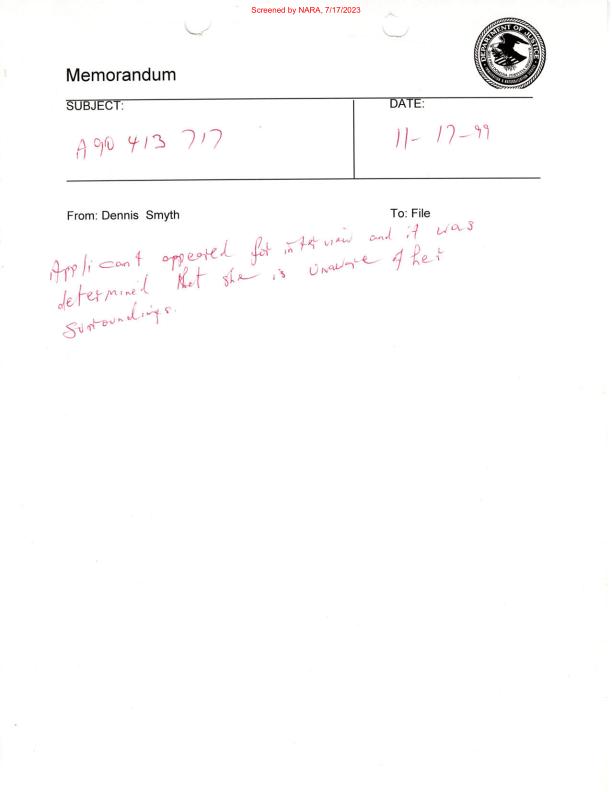 Screened by NARA, 7/17/2023
DEPARTMENT OF JUSTICE
Memorandum
SUBJECT:
DATE:
A90 413 717
11-17-99
From: Dennis Smyth
To: File
Applicant appeared for interview and it was
determined that she is unaware of her
surroundings.